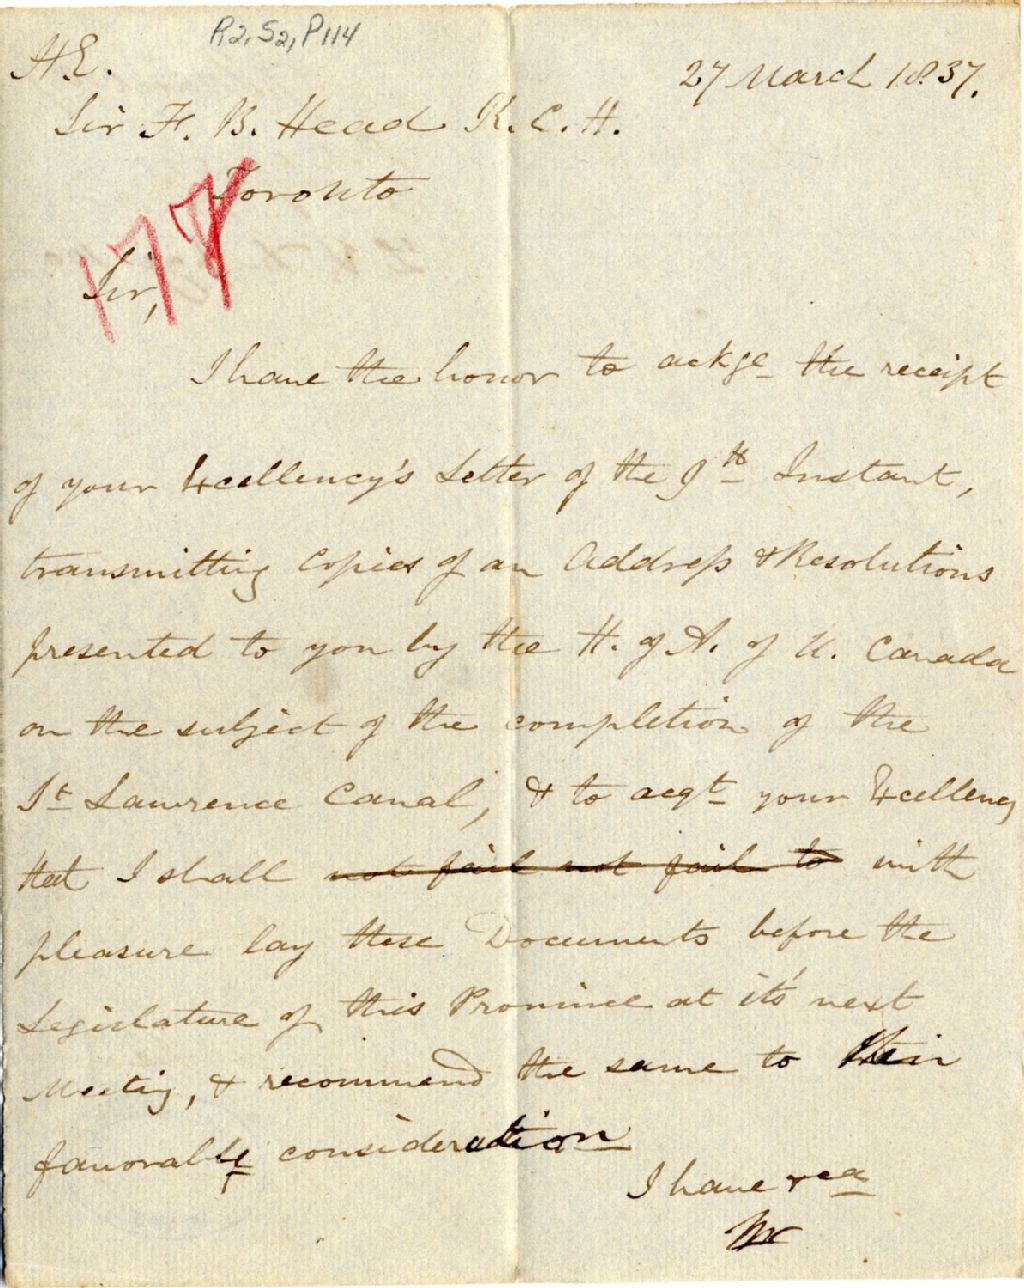 R2, S2, P114
H.E.
27 March 1837.
Sir F. B. Head K.C.H.
Toronto
177
Sir,
I have the honor to ackge the receipt
of your Excellency's Letter of the 9th Instant,
transmitting Copies of an Address & Resolutions
presented to you by the H. of A. of U. Canada
on the subject of the completion of the
St Lawrence Canal, & to acqt your Excellency
that I shall not fail not fail to with
pleasure lay these Documents before the
Legislature of this Province at it's next
Meeting, & recommend the same to their
favorable consideration
I have &ca